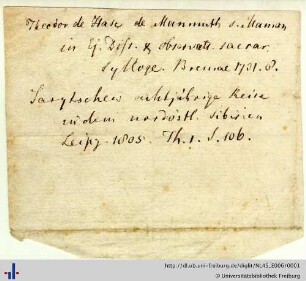 Theodor de Hase de Mammuth s. Maman
in Ej. Diss. & observatt. sacrar.
Sylloge. Bremae 1731. 8.
Sarytschew achtjährige Reise
in dem nordöstl. Sibirien
Leipz. 1805. Th. 1. S. 106.
http://dl.ub.uni-freiburg.de/diglit/NL45_E006/0001
© Universitätsbibliothek Freiburg